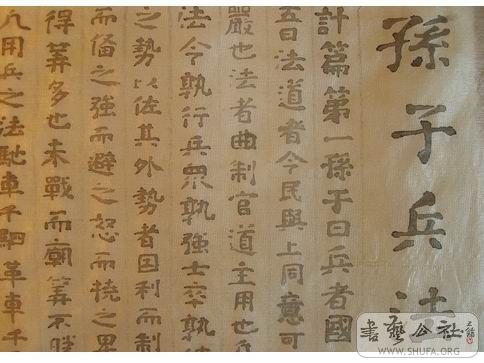 孫子兵法
計篇第一孫子曰兵者國
五曰法道者令民與上同意可
嚴也法者曲制官道主用也凡
法令孰行兵眾孰強士卒孰
之勢以佐其外勢者因利而制
而備之強而避之怒而撓之卑
得筭多也未戰而廟筭不勝
凡用兵之法馳車千駟革車千
書藝公社
WWW.SHUFA.ORG